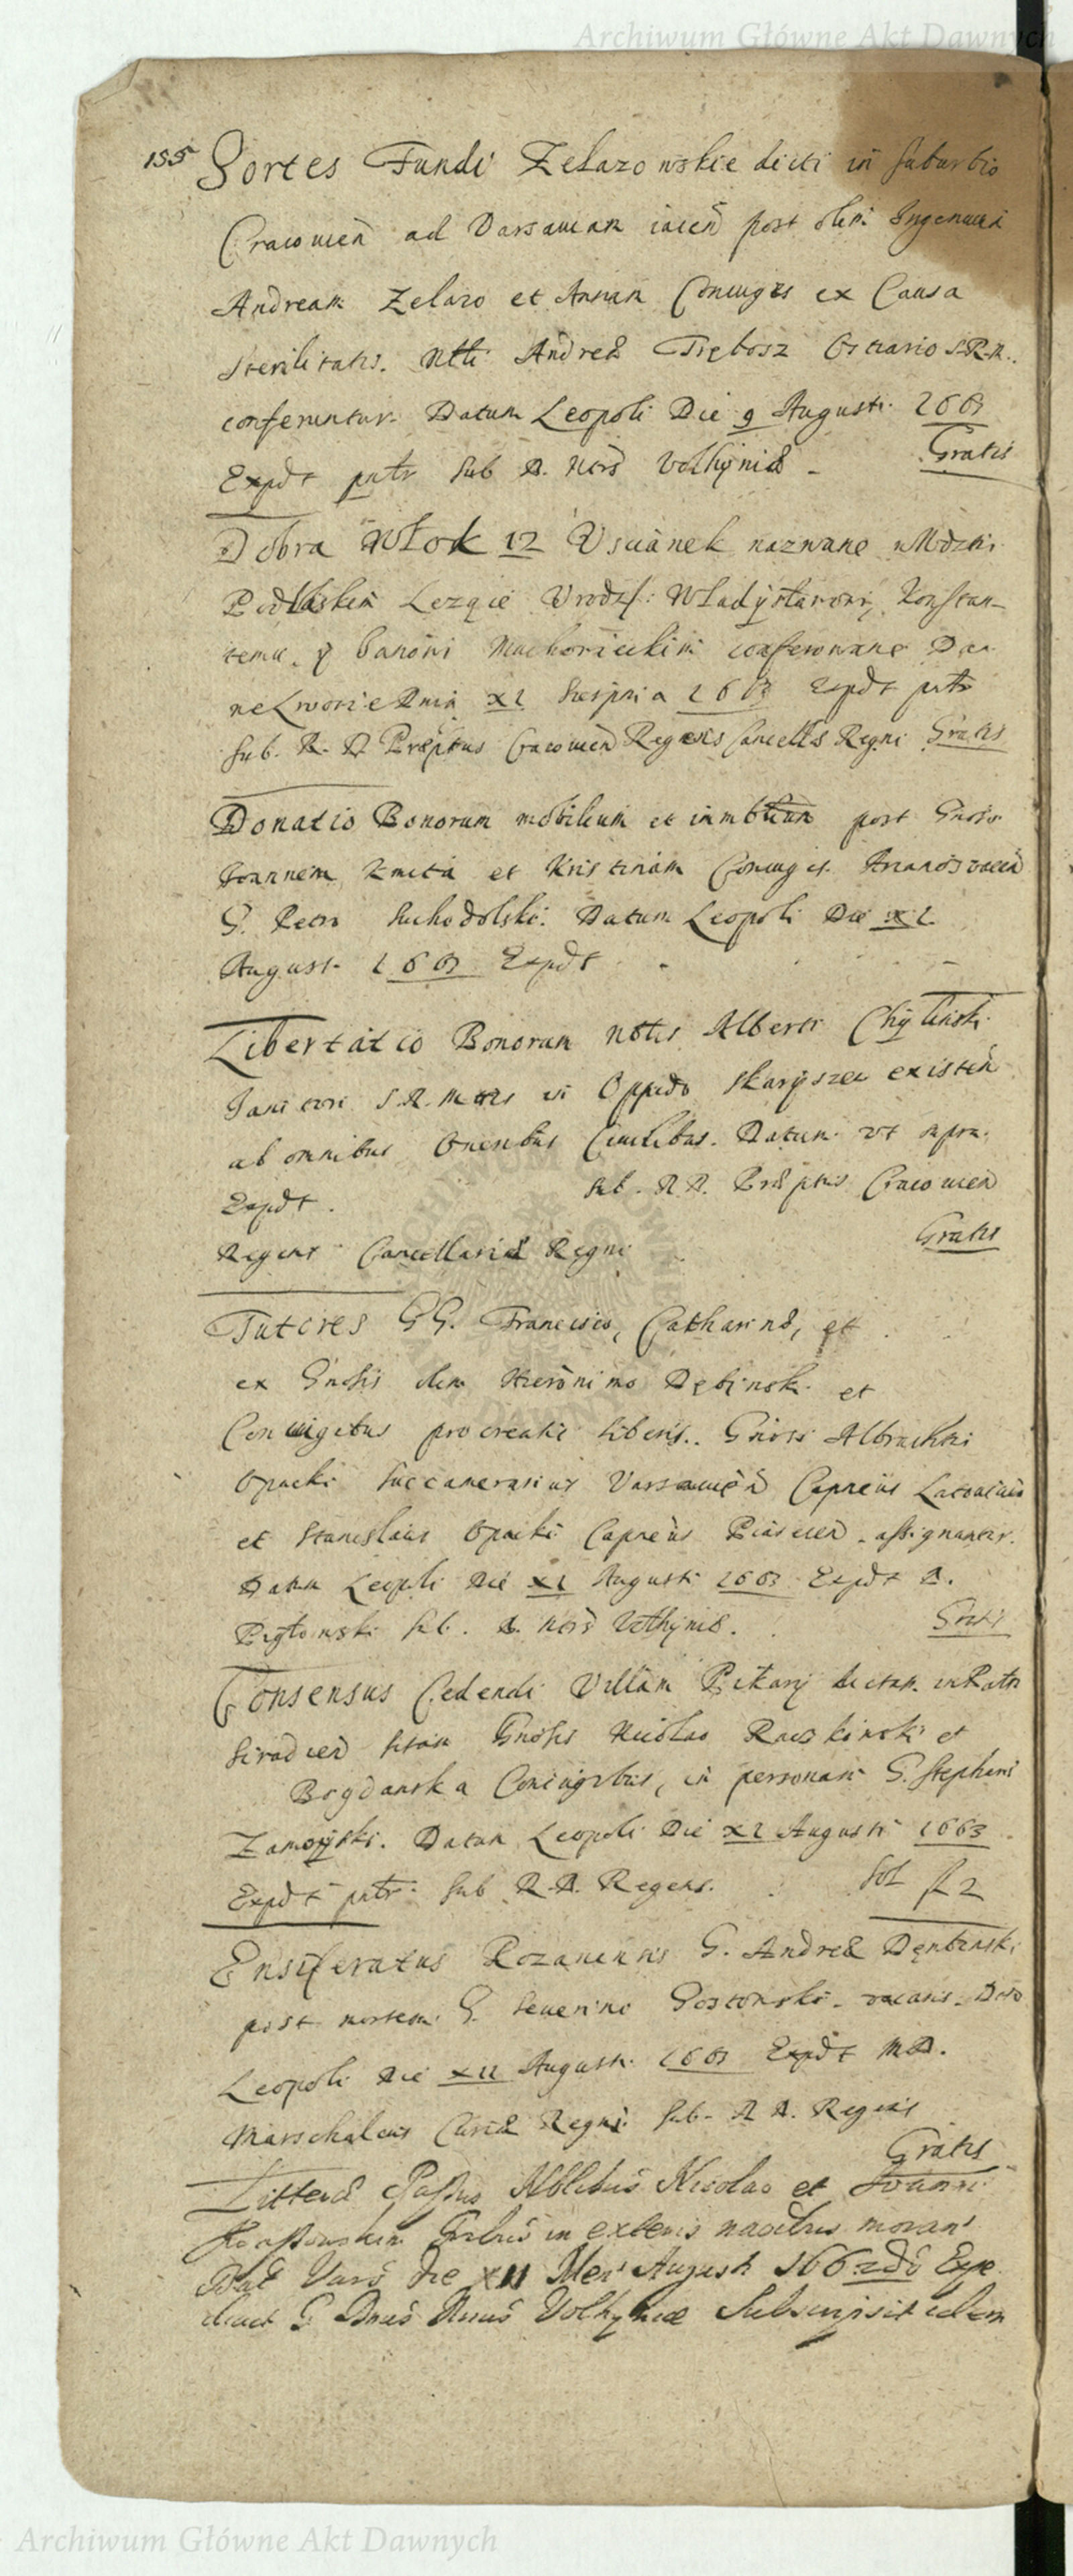 Archiwum Główne Akt Dawnych
155 Sortes Fundi Zelazowskie dicti in suburbio
Cracovien ad Varsaviam iacen post olim Ingenuum
Andream Zelazo et Annam Coniuges ex Causa
sterilitatis. Ntli Andreæ Trębosz Ostiario S.R.M.
conferuntur. Datum Leopoli Die 9 Augusti 1663
Expdt pntr sub R. Ners Volhyniæ - Gratis
Dobra Włok 12 Usciänek nazwane w Wdztwi
Podlaskim Lezące Urodz: Władysławowi, Konstan-
temu, y Panowi conferowane Dan
ne Lwowie Dnia XI Sierpnia 1663 Expdt pntr
sub. R. D Præptus Cracovien Regens Cancellæ Regni Gratis
Donatio Bonorum mobilium et inmbilium post Gnoso
Joannem Kmita et Kristinam Coniuges Arianos vacan
G. Petro Suchodolski. Datum Leopoli Die XI
August 1663 Expdt
Libertatio Bonorum Nblis Alberti Chylinski
Janitori S.R.Mttis in Oppido Skaryszew existen
ab omnibus Oneribus Civilibus. Datum ut supra.
Expdt. sub. R.D. Præptus Cracovien
Regent Cancellariæ Regni Gratis
Tutores GG. Francisco, Catharinæ, et
ex Gnosis olim Hieronimo Dębinski et
Coniugibus procreatis liberis. Gnosi Albrachti
Opacki Succamerarius Varsavien Capneus
et Stanislaus Opacki Capneus Piasecen assignantur.
Datum Leopoli Die XI Augusti 1663 Expdt D.
sub. R. Ners Volhyniæ. Gratis
Consensus Cedendi Villam Piekary dictam in Pattu
Siradien sitam Gnosis Nicolao et
Bogdanska Coniugibus, in personam G. Stephani
Zamoyski. Datum Leopoli Die XI Augusti 1663
Expdt pntr sub R.D. Regens. Sol f 2
Ensiferatus Rozanensis G. Andreæ Dęmbinski
post mortem G. Severino vacans. Dato
Leopoli Die XII Augusti 1663 Expdt M.D.
Marschalcus Curiæ Regni. sub. R D. Regens
Gratis
Litteræ Passus Nblibus Nicolao et Joanni
in exteris nacibus moran
Dat Vars die XII Men August 1662do Expe
diuit G Dnus Volhyniæ Subscripsit idem
Archiwum Główne Akt Dawnych